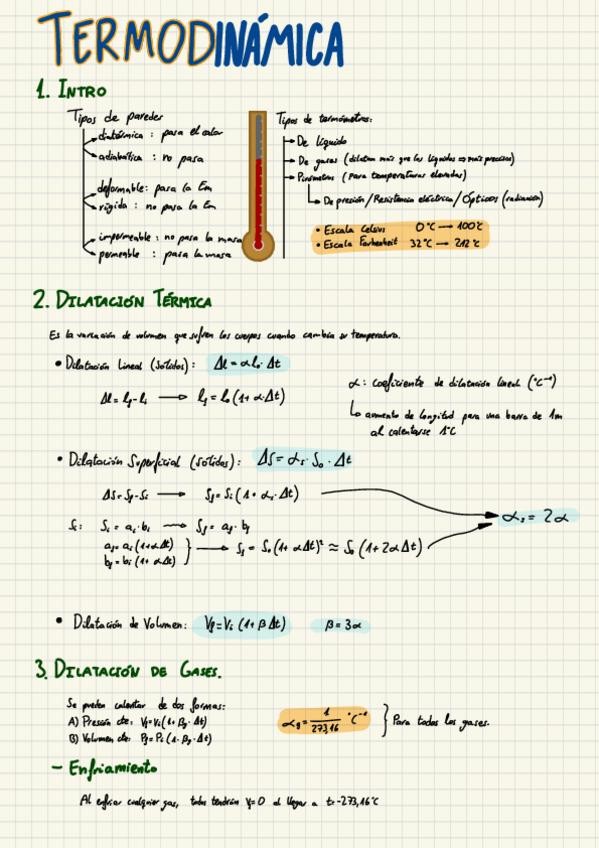 TERMODINÁMICA
1. INTRO
Tipos de paredes
diatérmica : pasa el calor
adiabática : no pasa
deformable: pasa la Em
rígida : no pasa la Em
impermeable : no pasa la masa
permeable : pasa la masa
Tipos de termómetros:
De líquido
De gases (dilatan más que los líquidos ⇒ más precisos)
Pirómetros (para temperaturas elevadas)
De presión/Resistencia eléctrica/Ópticos (radiación)
• Escala Celsius 0°C → 100°C
• Escala Farhenheit 32°C → 212°C
2. DILATACIÓN TÉRMICA
Es la variación de volumen que sufren los cuerpos cuando cambia su temperatura.
• Dilatación Lineal (sólidos): Δl = α·l₀·Δt
Δl = lf - li → lf = l₀ (1 + α·Δt)
α : coeficiente de dilatación lineal (°C⁻¹)
aumento de longitud para una barra de 1m
al calentarse 1°C
• Dilatación Superficial (sólidos): ΔS = αs · S₀ · Δt
ΔS = Sf - Si → Sf = Si (1 + αs · Δt)
αs = 2α
Si: Si = ai · bi → Sf = af · bf
af = ai (1+αΔt)
bf = bi (1+ αΔt)
Sf = S₀ (1+ αΔt)² ≈ S₀ (1 + 2αΔt)
• Dilatación de Volumen: Vf = Vi (1+ βΔt) β = 3α
3. DILATACIÓN DE GASES.
Se pueden calentar de dos formas:
A) Presión cte: Vf = Vi (1 + βg · Δt)
B) Volumen cte: Pf = Pi (1 + βg · Δt)
αg = 1/273,16 °C⁻¹ } Para todos los gases.
- Enfriamiento
Al enfriar cualquier gas, todos tendrían V = 0 al llegar a t = -273,16°C